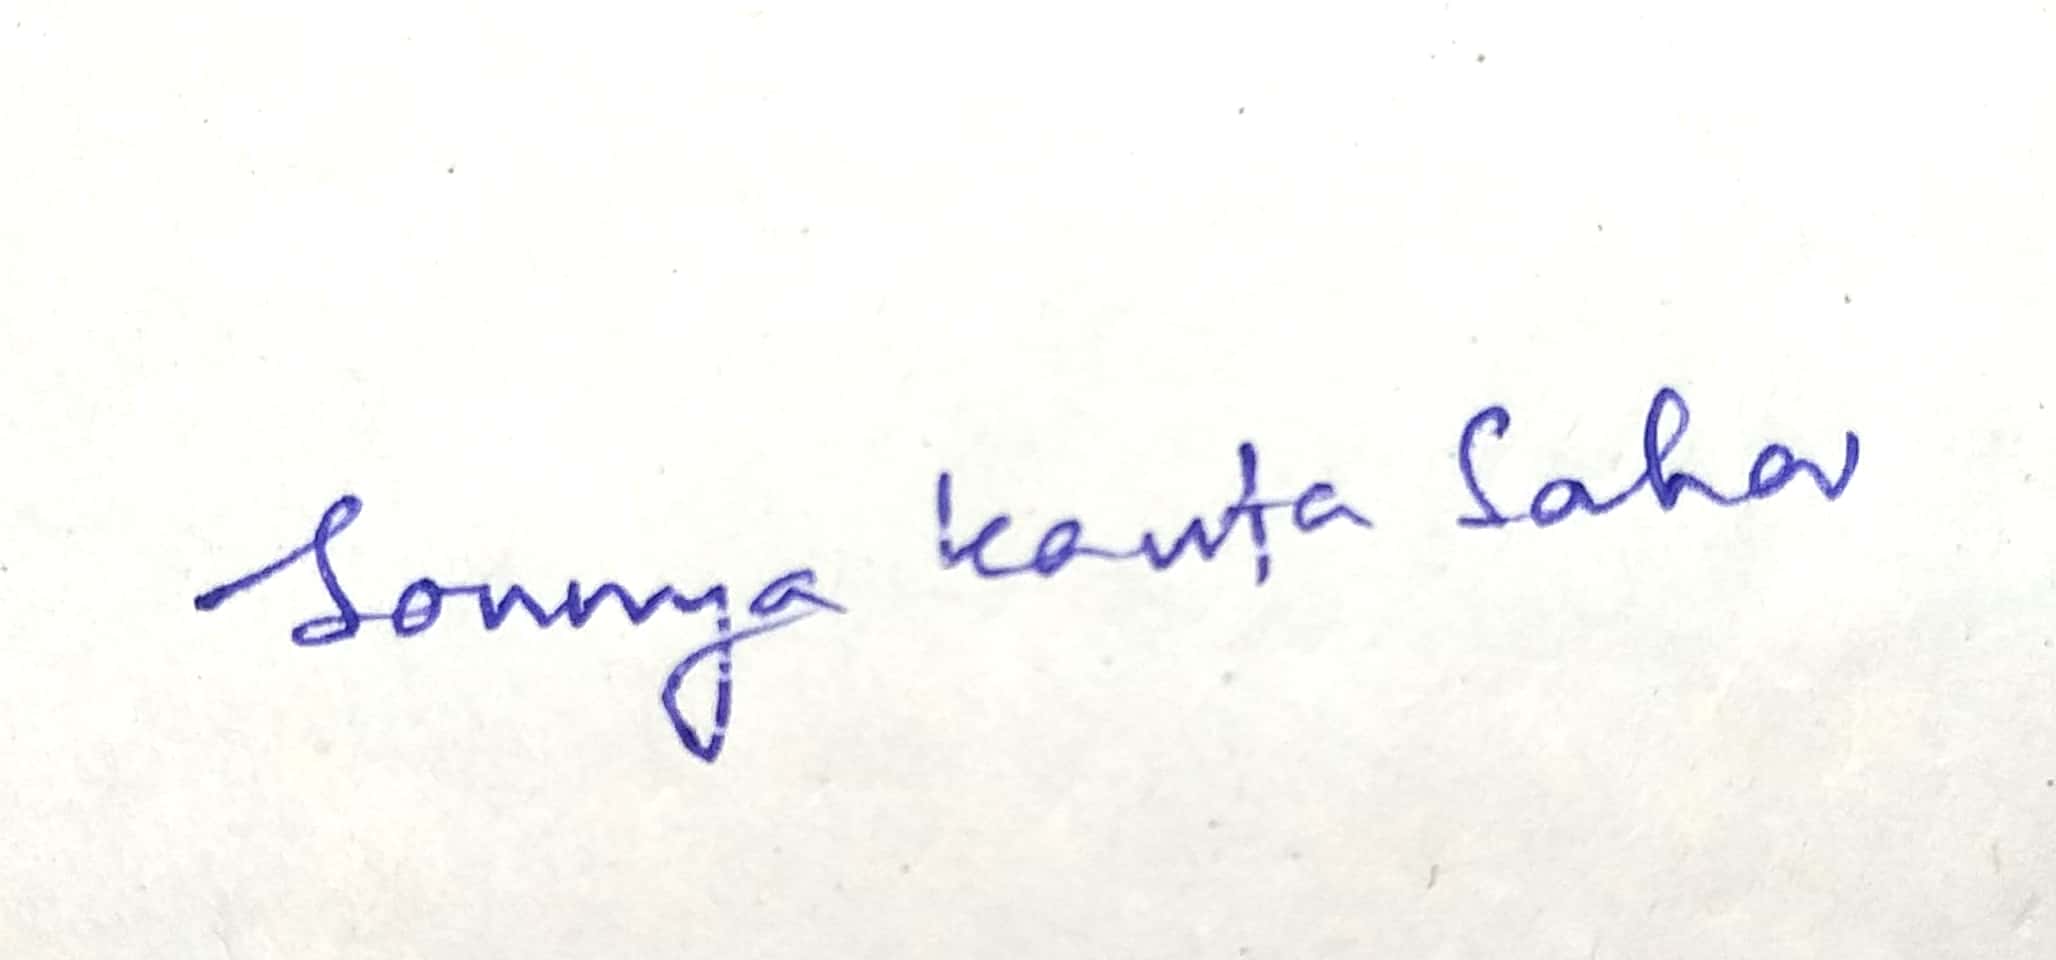 Soumya Kanta Saha